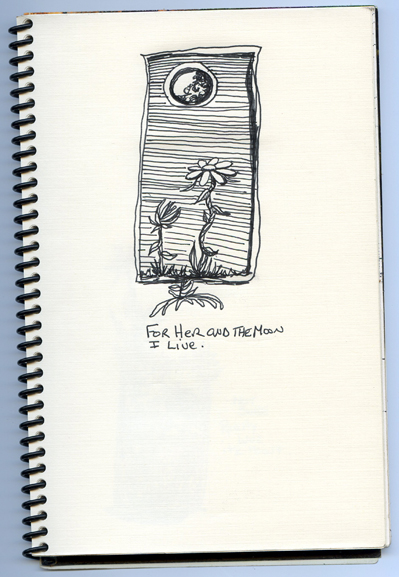 FOR HER AND THE MOON
I LIVE.